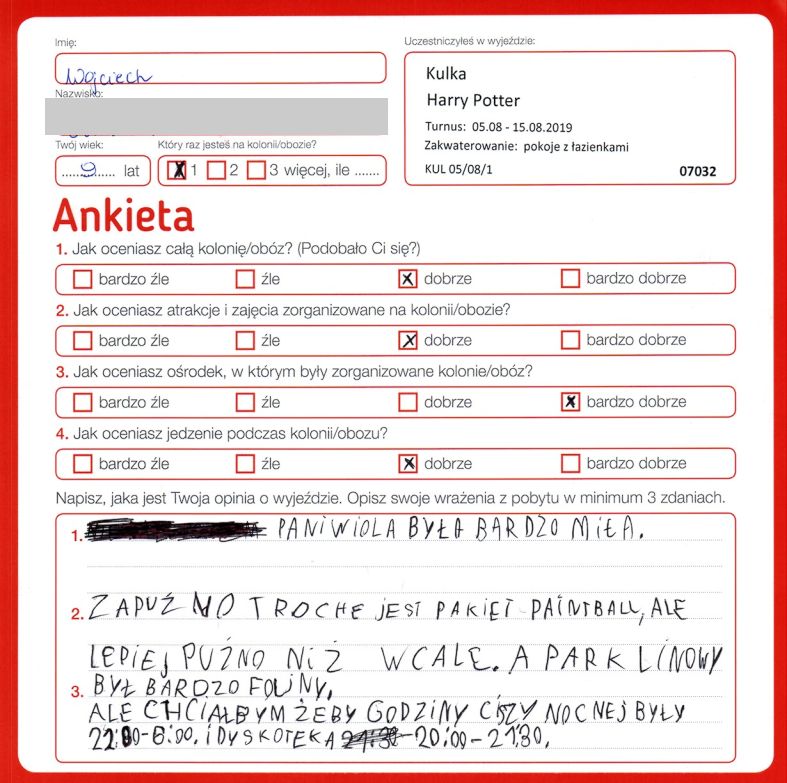 Imię:
Wojciech
Nazwisko:
Twój wiek:
9 lat
Który raz jesteś na kolonii/obozie?
1 2 3 więcej, ile .......
Uczestniczyłeś w wyjeździe:
Kulka
Harry Potter
Turnus: 05.08 - 15.08.2019
Zakwaterowanie: pokoje z łazienkami
KUL 05/08/1 07032
Ankieta
1. Jak oceniasz całą kolonię/obóz? (Podobało Ci się?)
bardzo źle źle dobrze bardzo dobrze
2. Jak oceniasz atrakcje i zajęcia zorganizowane na kolonii/obozie?
bardzo źle źle dobrze bardzo dobrze
3. Jak oceniasz ośrodek, w którym były zorganizowane kolonie/obóz?
bardzo źle źle dobrze bardzo dobrze
4. Jak oceniasz jedzenie podczas kolonii/obozu?
bardzo źle źle dobrze bardzo dobrze
Napisz, jaka jest Twoja opinia o wyjeździe. Opisz swoje wrażenia z pobytu w minimum 3 zdaniach.
1. PANI WIOLA BYŁA BARDZO MIŁA.
2. ZAPUŹNO TROCHE JEST PAKIET PAINTBALL, ALE
LEPIEJ PUŹNO NIŻ WCALE. A PARK LINOWY
3. BYŁ BARDZO FOJNY,
ALE CHCIAŁBYM ŻEBY GODZINY CISZY NOCNEJ BYŁY
22:00-6:00. I DYSKOTEKA 20:00-21:30.